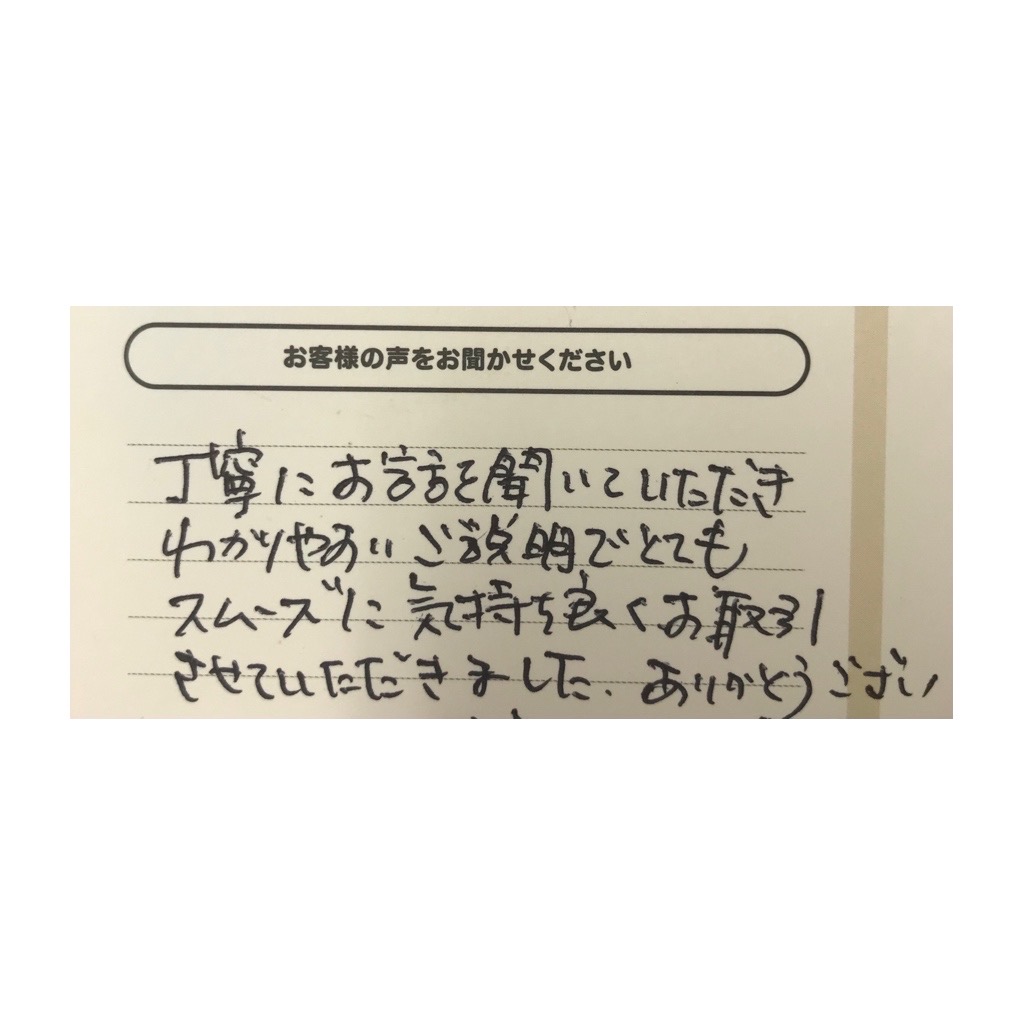 お客様の声をお聞かせください
丁寧にお話を聞いていただき
わかりやすい ご説明でとても
スムーズに 気持ち良くお取引
させていただきました。ありがとうござい